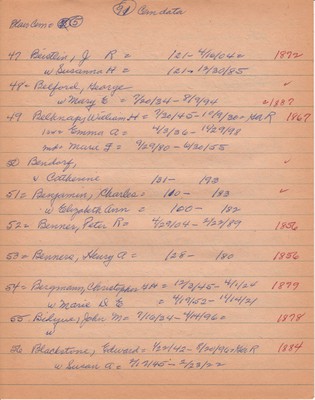 Cem data
Blair Cem =
47 J R = 121 - 4/10/04 = 1872
w Susanna H = 121 - 12/30/85
48 = Belford, George ✓
w Mary E = 7/20/24 - 8/9/94 = 1887
49 Belknap, William H = 7/20/45 - 10/9/30 = GAR 1867
1st w Emma A = 4/2/36 - 1/29/98
2nd = Maria F = 9/29/60 - 6/20/55
50 Bendorf, ✓
w Catherine 121 - 193
51 = Benjamin, Charles = 100 - 183 ✓
w Elizabeth Ann = 100 - 182
52 = Benner, Peter R = 4/29/04 - 2/23/89 1856
53 = Benners, Henry A = 128 - 180 1856
54 = Bergmann, Christopher H H = 12/3/45 - 4/1/24 1879
w Marie D E = 4/17/52 - 10/14/21
55 John M = 7/10/24 - 4/14/96 = 1878
w
56 Blackstone, Edward = 7/22/42 - 8/20/96 = GAR 1884
w Susan A = 2/17/45 - 2/23/22